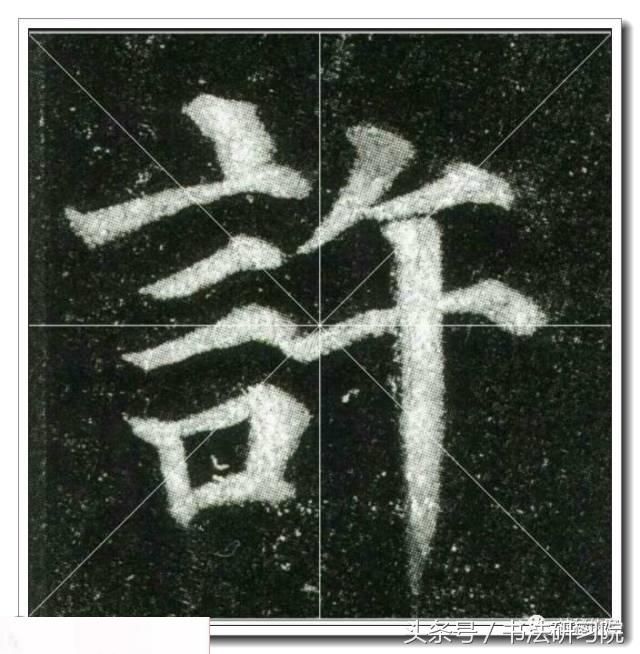 許
头条号 / 书法研习院